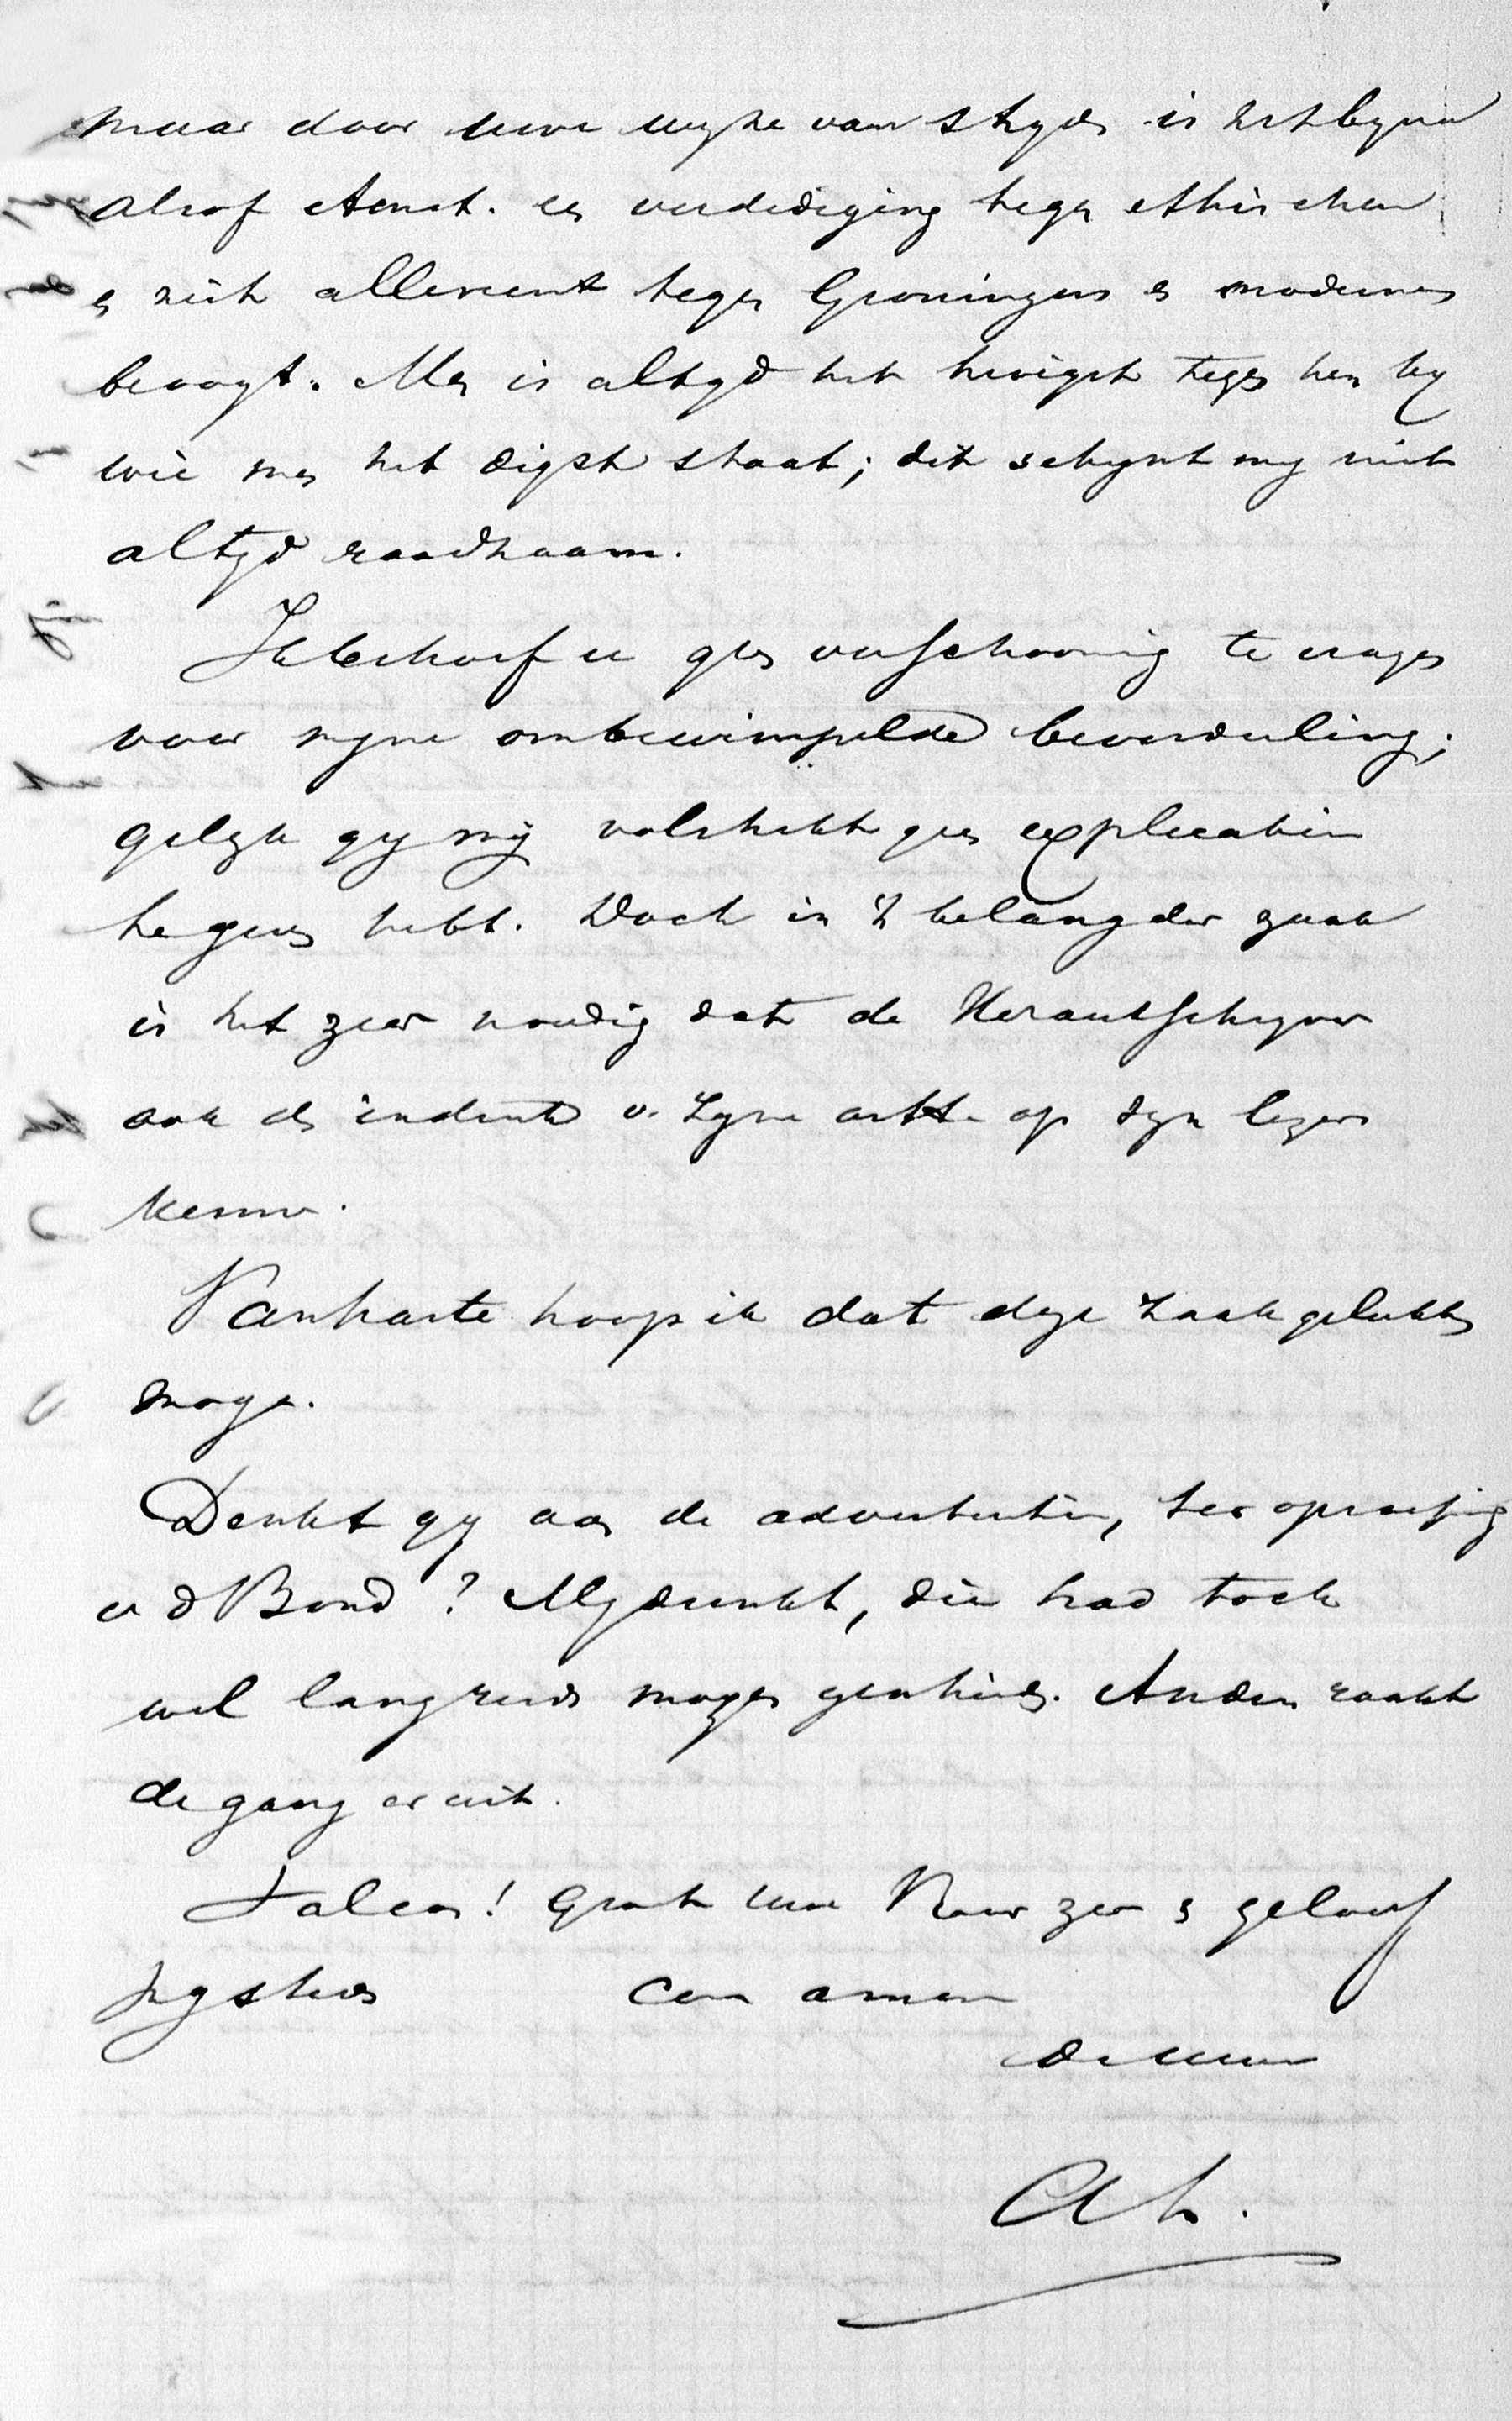 maar door uwe wyze van stryden is het byna
alsof Amst. een verdediging tegen ethischen
en niet allereerst tegen Groningers en modernen
beoogt. Men is altyd het hevigst tegen hen by
wie men het digst staat; dit schynt my niet
altyd raadzaam.
Ik behoef u geen verschooning te vragen
voor myne onbewimpelde beoordeeling;
gelyk gy mij volstrekt geen explicatien
te geven hebt. Doch in 't belang der zaak
is het zeer noodig dat de Herautschryver
ook den indruk v. zyne artt. op zyn lezers
kenne.
Van harte hoop ik dat deze zaak gelukken
moge.
Denkt gy aan de advertentien, ter oproeping
v d Bond? My dunkt, die had toch
wel langzends mogen geschieden. Anders raakt
de gang er uit.
Valeas! Groet uwe Vrouw zeer en geloof
my steeds con amore
de uwe
Ah.